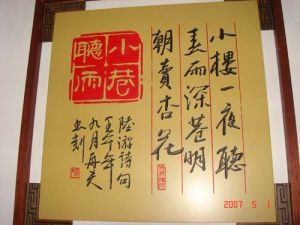 小樓一夜聽
春雨深巷明
朝賣杏花
小巷
聽雨
陸游詩句
壬午年
九月
2007 5 1